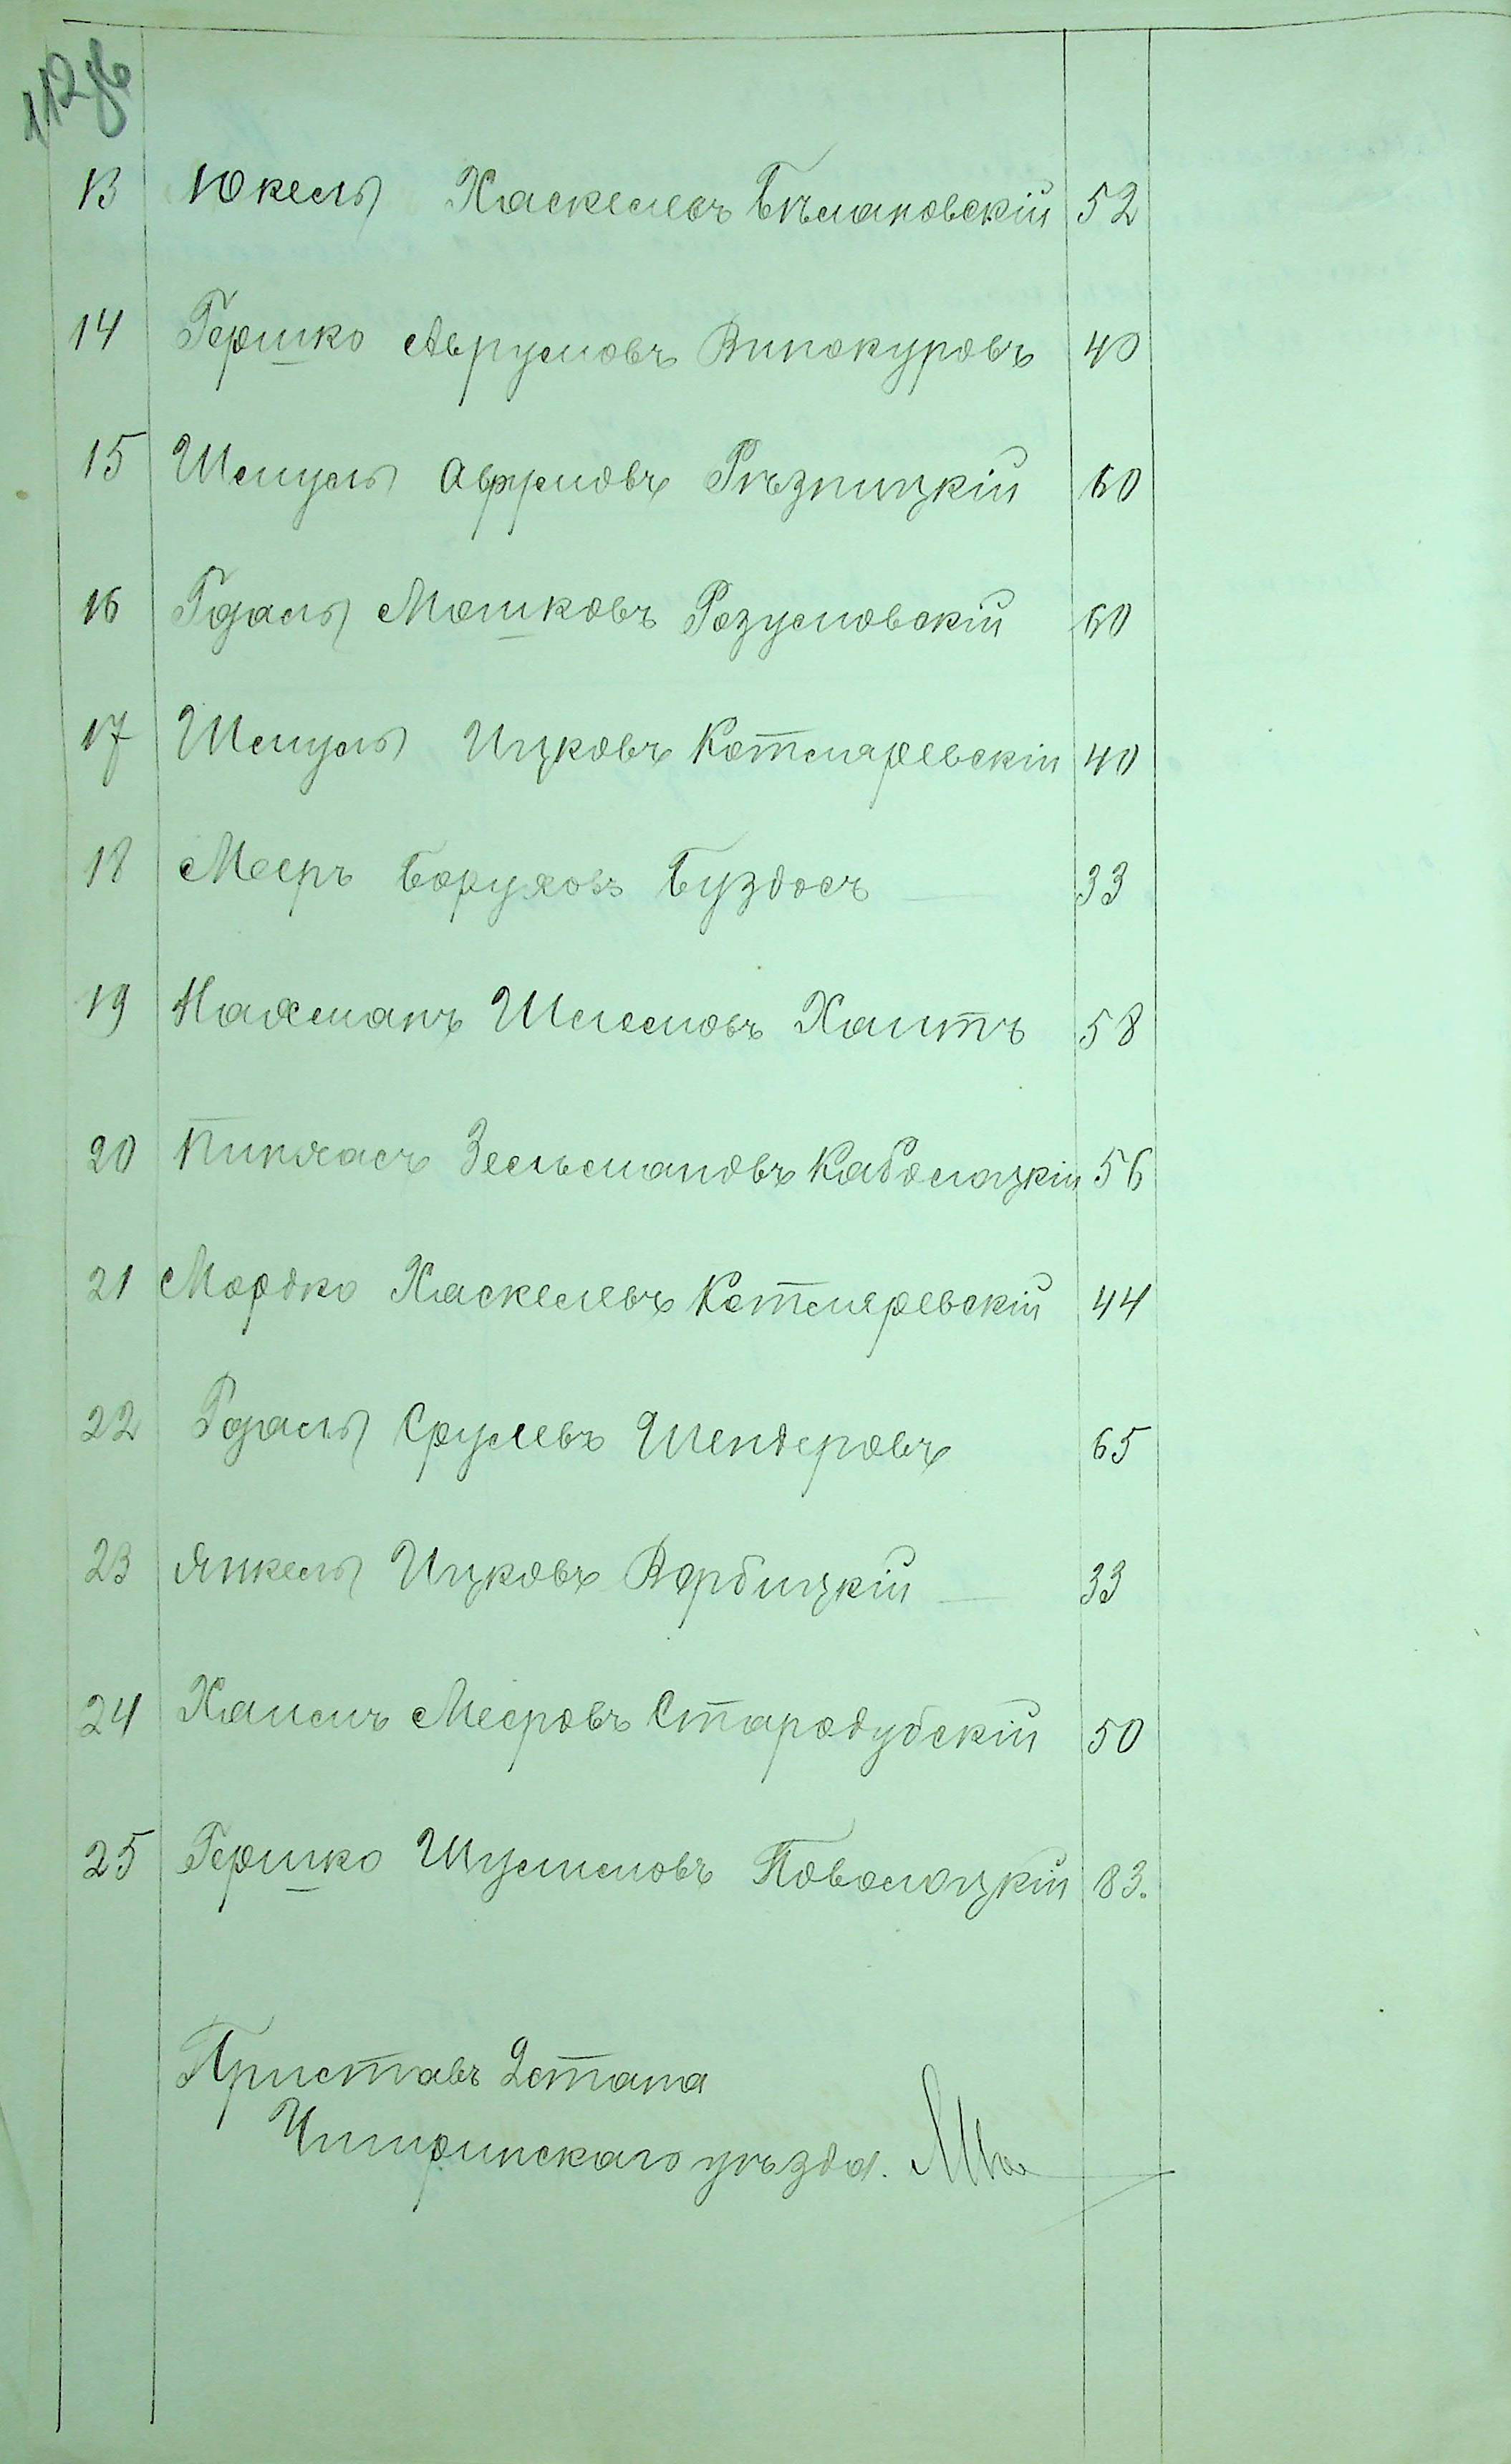 112 об
13 Юкель Хаскелевъ Бѣлановскій 52
14 Гершко Аврумовъ Винокуровъ 40
15 Шмуль Аврумовъ Рѣзницкій 60
16 Гдаль Мошковъ Розумовскій 60
17 Шмуль Ицковъ Котляревскій 40
18 Меєръ Боруховъ 33
19 Нахманъ Шлемовъ Хаитъ 58
20 Пинхасъ Зельмановъ 56
21 Мордко Хаскелевъ Котляревскій 44
22 Гдаль Срулевъ Шендеровъ 65
23 Янкель Ицковъ Вербицкій 33
24 Хаимъ Мееровъ Стародубскій 50
25 Гершко Шулимовъ Поволоцкій 83.
Приставъ 2 стана
Чигиринскаго уѣзда.